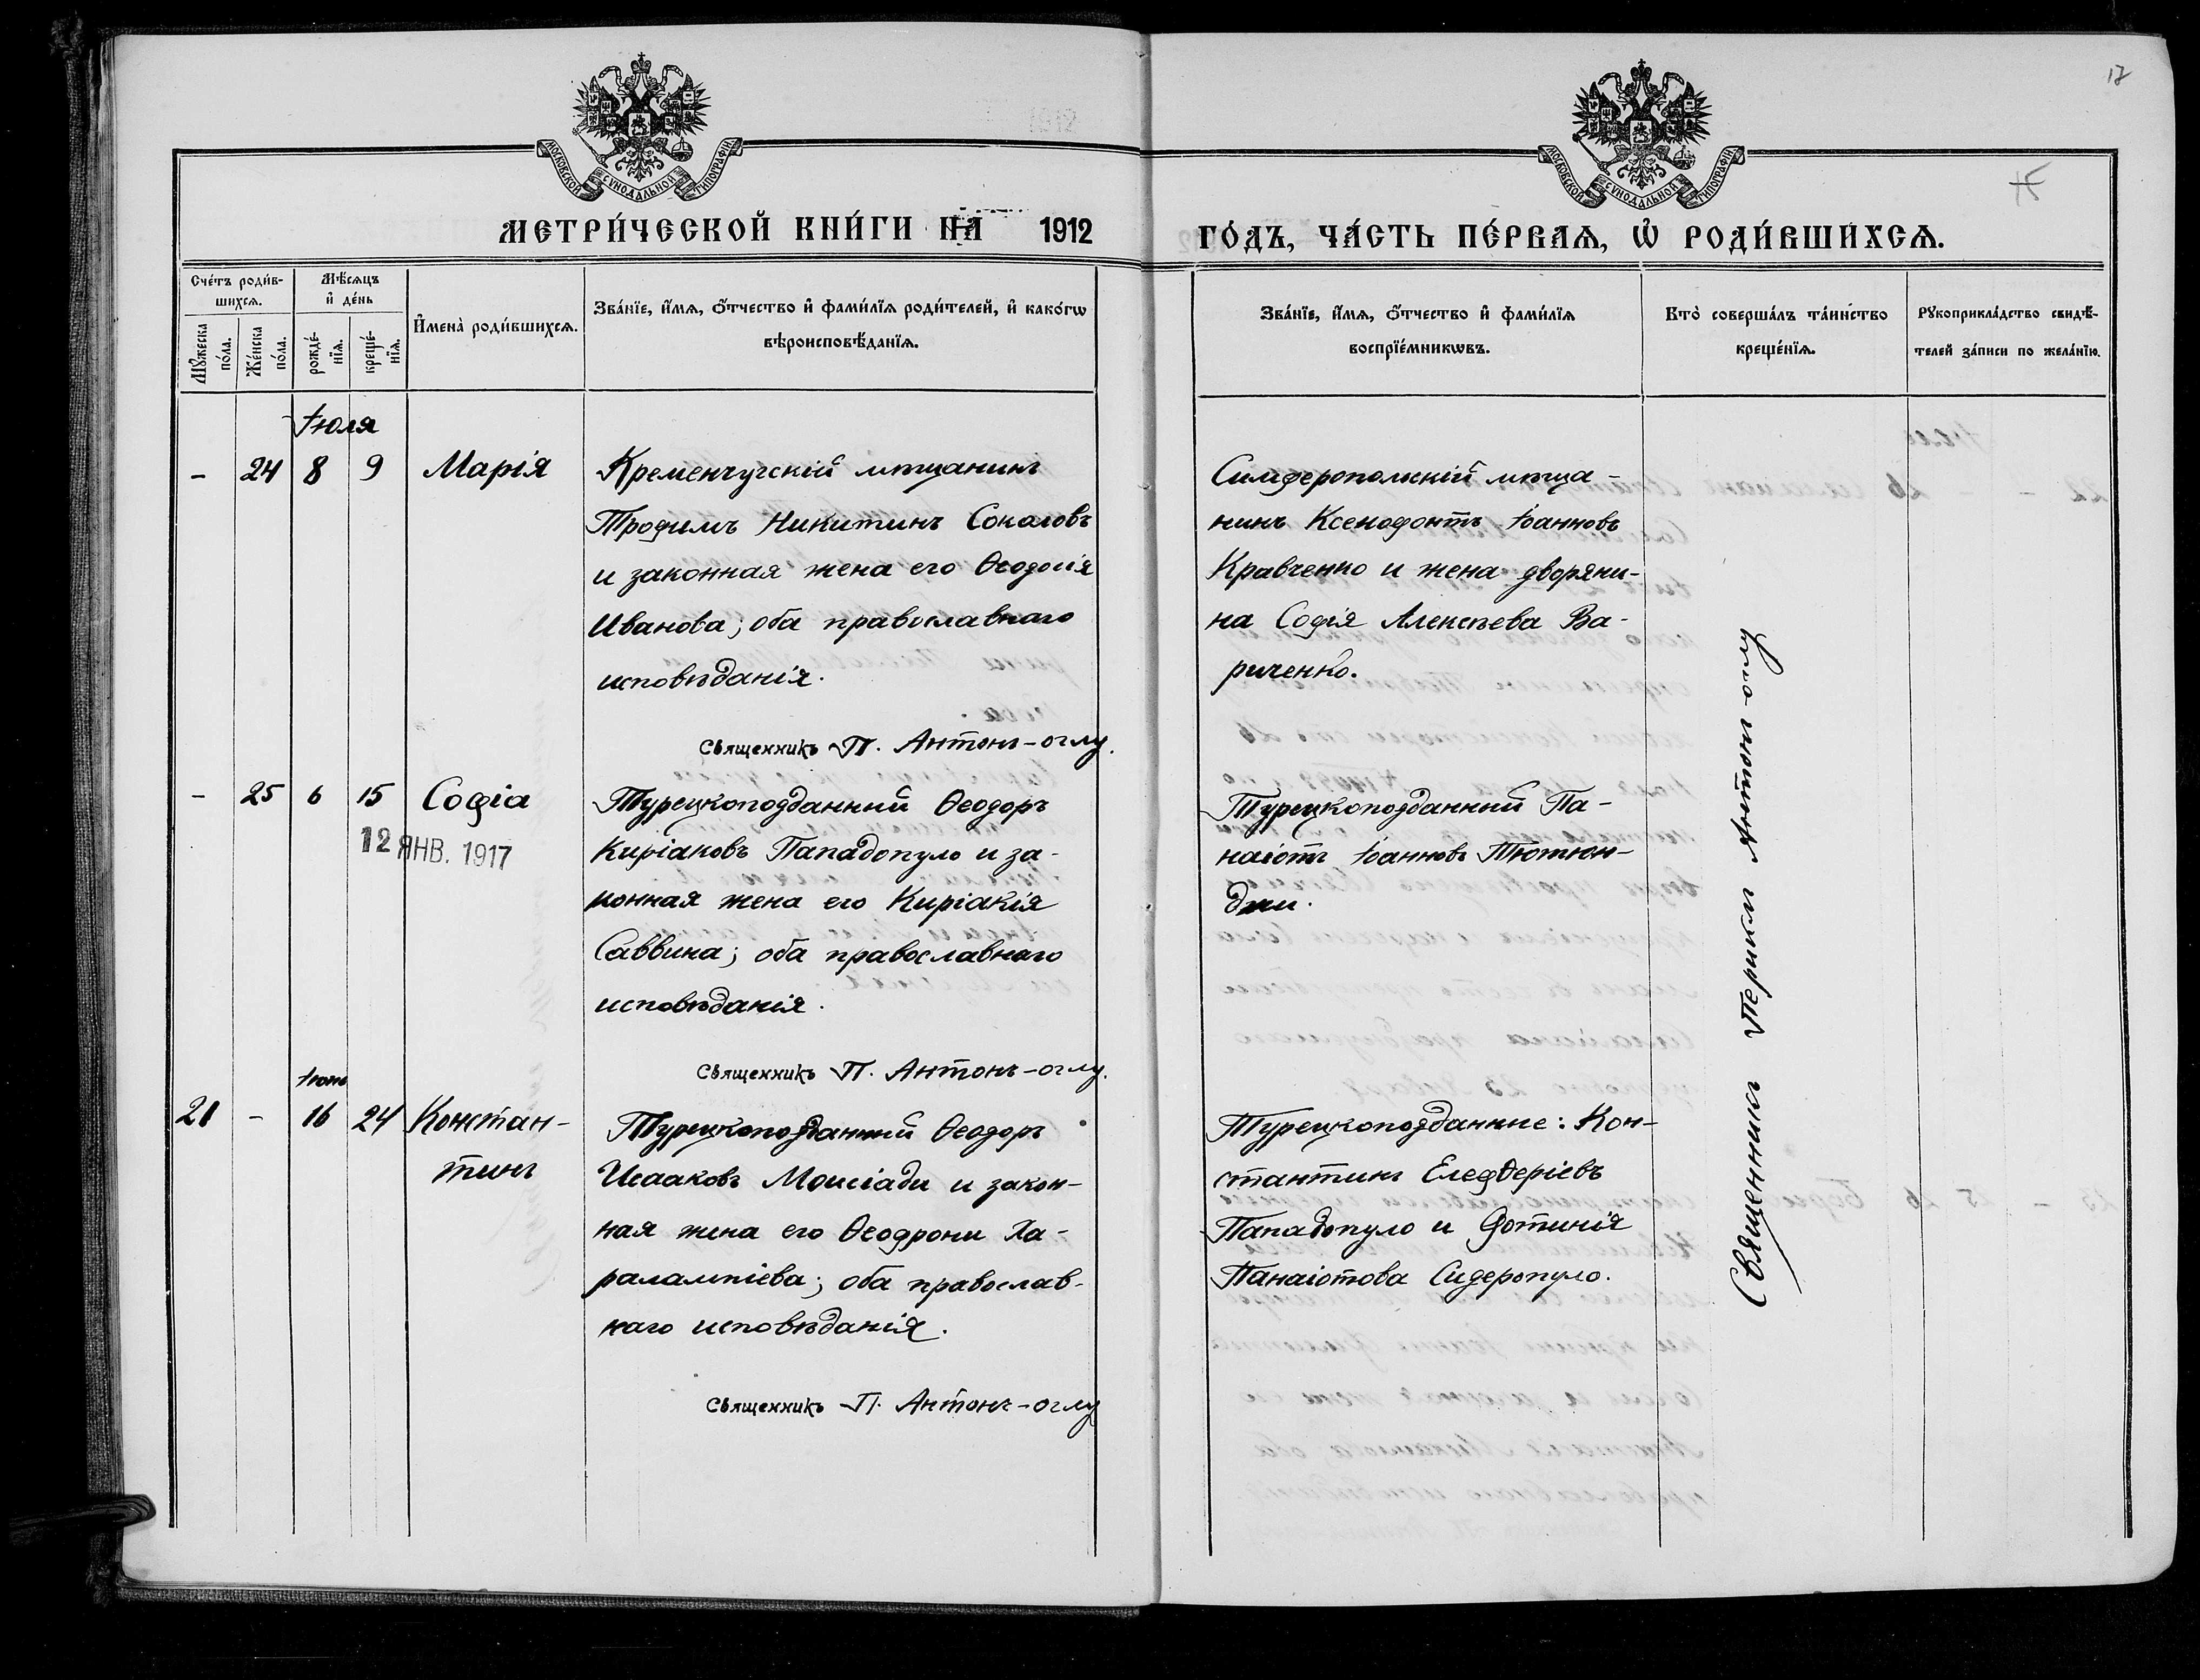 17
1912
МОСКОВСКОЙ СѴНОДАЛЬНОЙ ТИПОГРАФІИ
МОСКОВСКОЙ СѴНОДАЛЬНОЙ ТИПОГРАФІИ
15
МЕТРИ́ЧЕСКОЙ КНИ́ГИ НА 1912
ГО́ДЪ, ЧА́СТЬ ПЕ́РВАѦ, Ѡ҆ РОДИ́ВШИХСѦ.
Сче́тъ роди́в-
шихсѧ.
Мꙋ́жеска
по́ла.
Же́нска
по́ла.
Мѣ́сѧцъ
и҆ де́нь
рожде́-
нїѧ.
креще́-
нїѧ.
И҆мена̀ роди́вшихсѧ.
Зва́нїе, и҆́мѧ, ѻ҆́тчество и҆ фами́лїѧ роди́телей, и҆ како́гѡ
вѣроисповѣ́данїѧ.
Зва́нїе, и҆́мѧ, ѻ҆́тчество и҆ фами́лїѧ
воспрїе́мникѡвъ.
Кто̀ соверша́лъ та́инство
креще́нїѧ.
Рꙋкоприкла́дство свидѣ́-
телей за́писи по жела́нїю.
Іюля
- 24 8 9 Марія
Кременчугскій мѣщанинъ
Трофимъ Никитинъ Соколовъ
и законная жена его Ѳеодосія
Иванова; оба православнаго
исповѣданія.
Священникъ П. Антонъ-оглу.
Симферопольскій мѣща-
нинъ Ксенофонтъ Іоанновъ
Кравченко и жена дворяни-
на Софія Алексѣева Ва-
риченко.
- 25 6 15 Софіа
12 ЯНВ. 1917
Турецкоподданный Ѳеодоръ
Киріаковъ Пападопуло и за-
конная жена его Киріакія
Саввина; оба православнаго
исповѣданія.
Священникъ П. Антонъ-оглу.
Турецкоподданный Па-
наіотъ Іоанновъ Тютюн-
джи.
Іюнь
21 - 16 24 Констан-
тинъ
Турецкоподданный Ѳеодоръ
Исааковъ Моисіади и закон-
ная жена его Ѳеофрони Ха-
ралампіева; оба православ-
наго исповѣданія.
Священникъ П. Антонъ-оглу
Турецкоподданные: Кон-
стантинъ Елефѳеріевъ
Пападопуло и Фотинія
Панаіотова Сидеропуло.
Священникъ Периклъ Антонъ-оглу